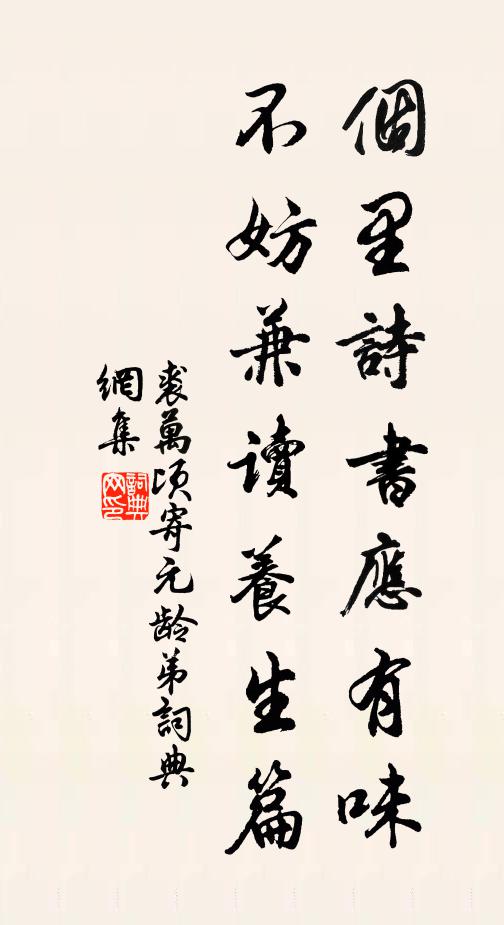 個里詩書應有味
不妨兼讀養生篇
裘萬頃寄元龄弟詞典
網集
詞典網印